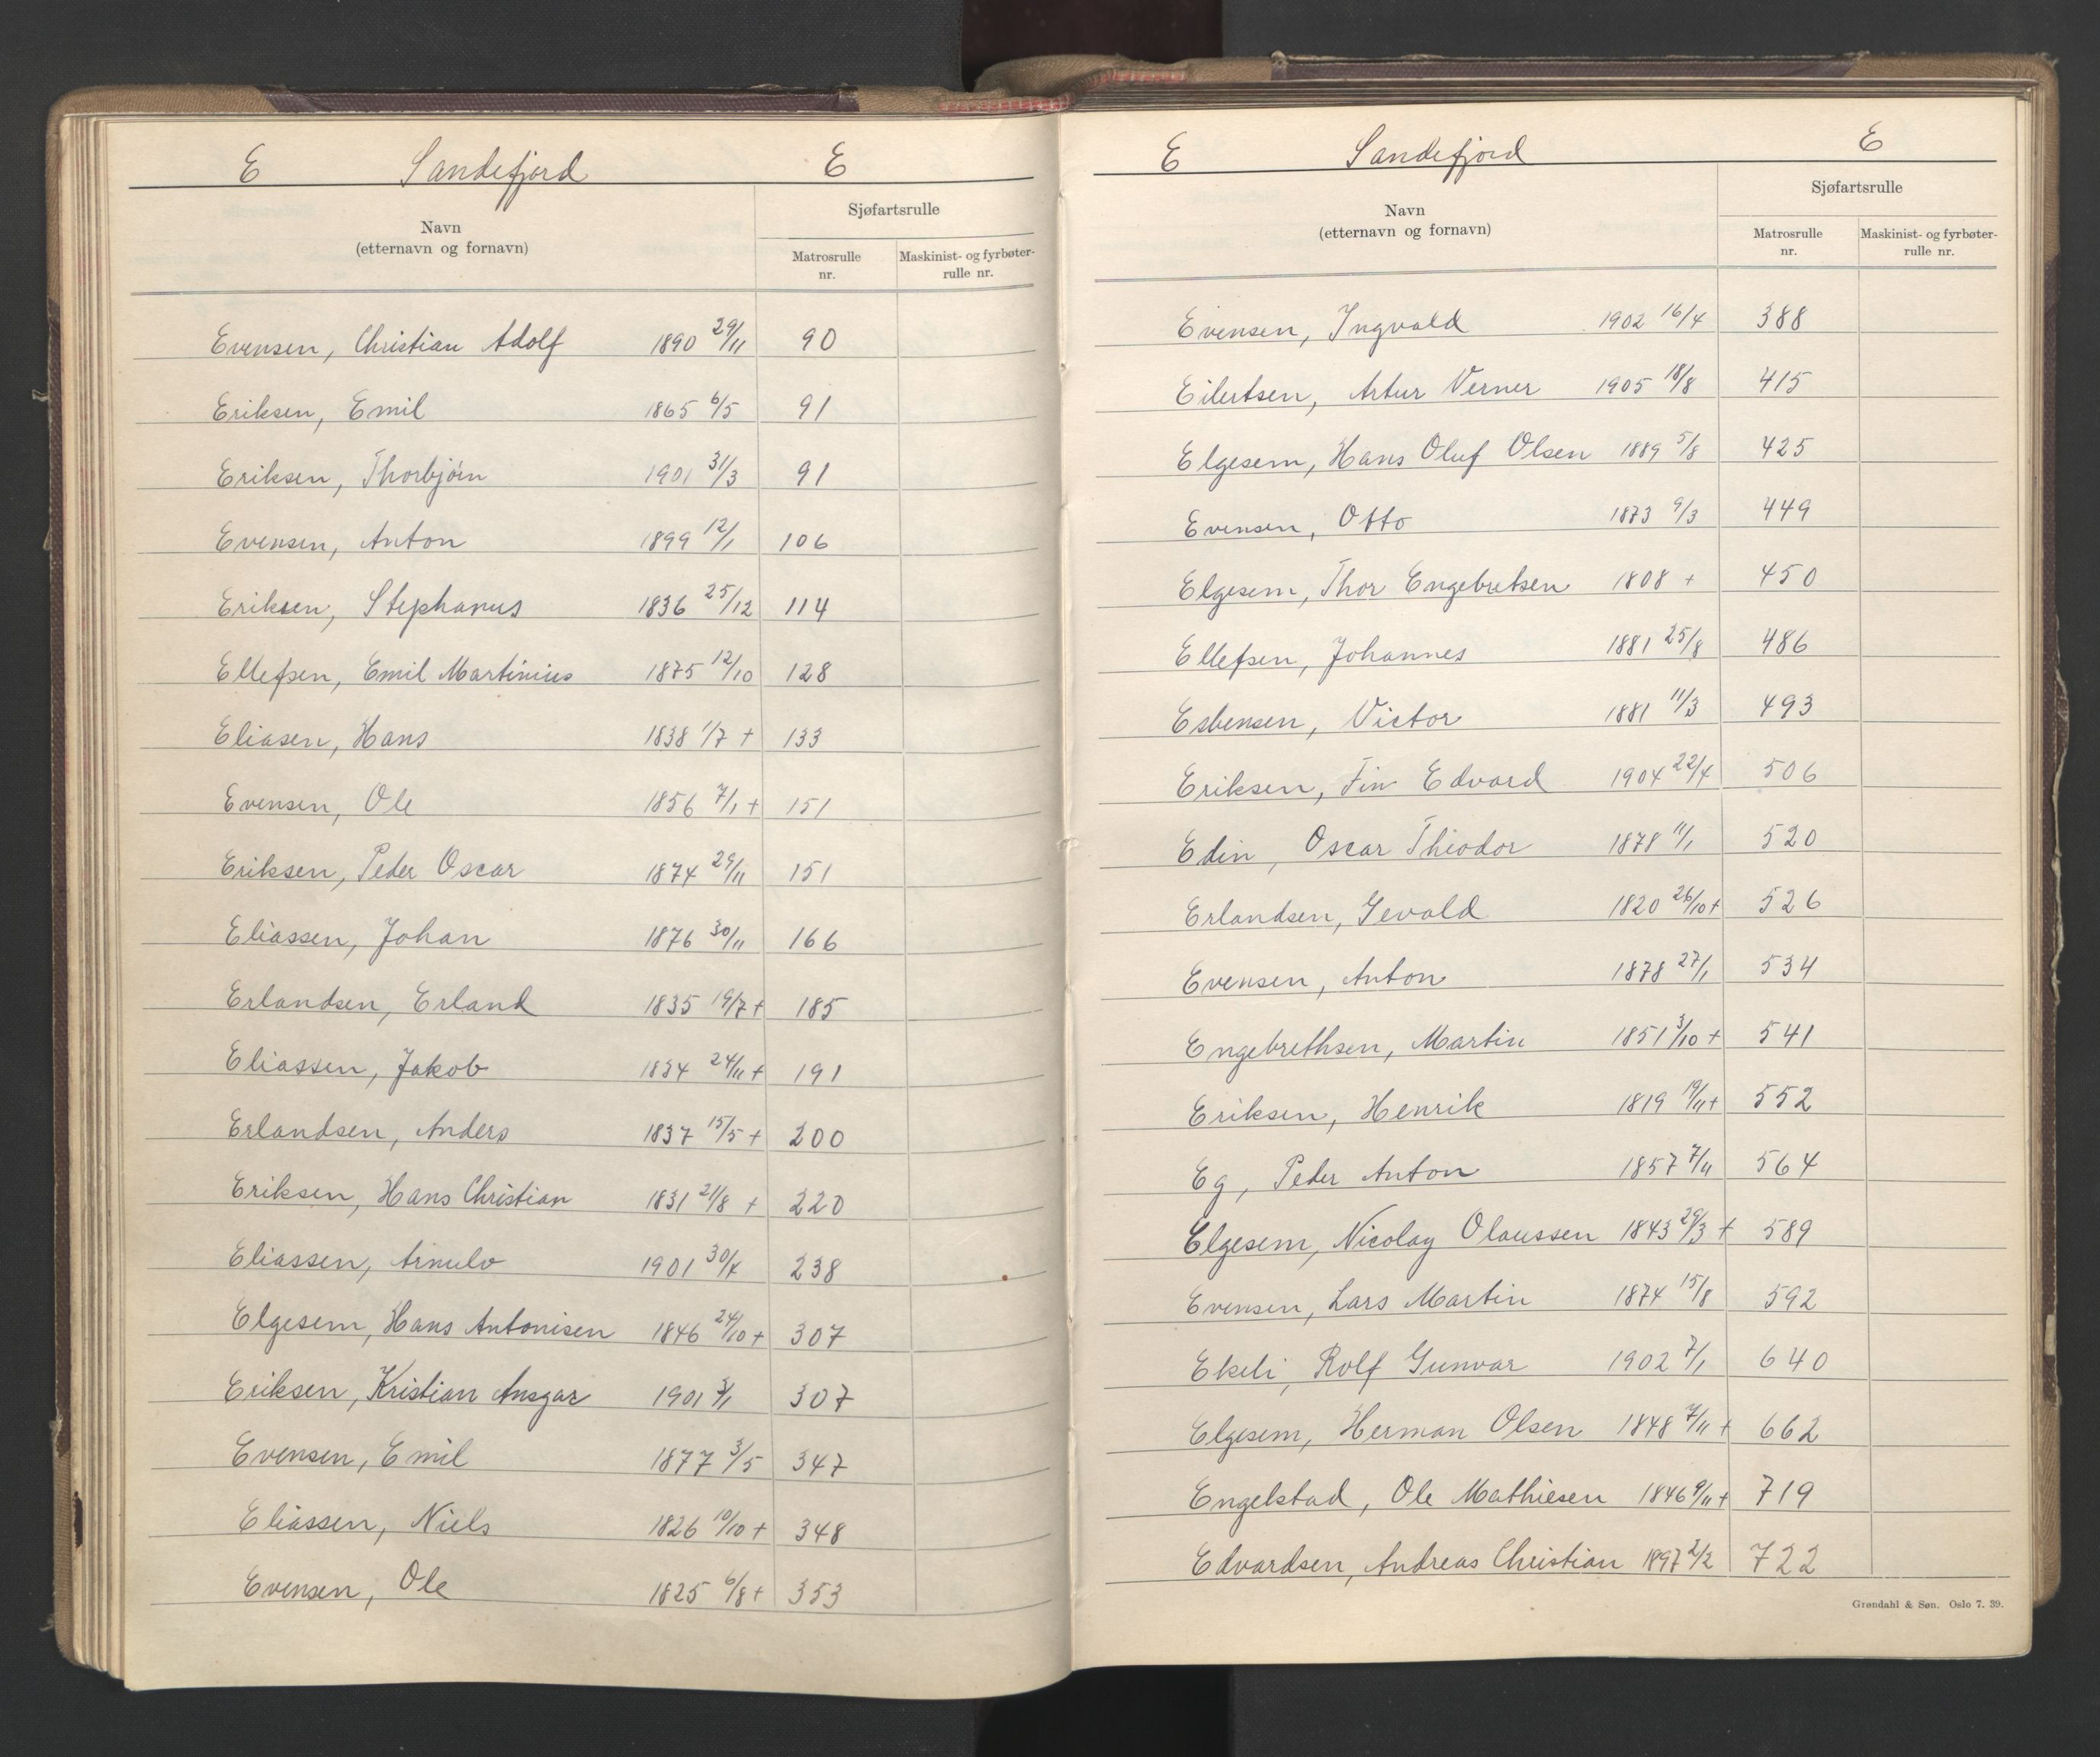 E Sandefjord E
Sjøfartsrulle
Navn
(etternavn og fornavn)
Matrosrulle nr.
Maskinist- og fyrbøter-rulle nr.
Evensen, Christian Adolf 1890 29/11 90
Eriksen, Emil 1865 6/5 91
Eriksen, Thorbjörn 1901 31/3 91
Evensen, Anton 1899 12/1 106
Eriksen, Stephanus 1836 25/12 114
Ellefsen, Emil Martinius 1875 12/10 128
Eliasen, Hans 1838 1/7 + 133
Evensen, Ole 1856 7/1 + 151
Eriksen, Peder Oscar 1874 29/11 151
Eliassen, Johan 1876 30/11 166
Erlandsen, Erland 1835 19/7 + 185
Eliassen, Jakob 1834 24/11 + 191
Erlandsen, Anders 1837 15/5 + 200
Eriksen, Hans Christian 1831 21/8 + 220
Eliassen, Arnulv 1901 30/4 238
Elgesem, Hans Antonisen 1846 24/10 + 307
Eriksen, Kristian Ansgar 1901 3/1 307
Evensen, Emil 1877 3/5 347
Eliassen, Niels 1826 10/10 + 348
Evensen, Ole 1825 6/8 + 353
E Sandefjord E
Sjøfartsrulle
Navn
(etternavn og fornavn)
Matrosrulle nr.
Maskinist- og fyrbøter-rulle nr.
Evensen, Ingvald 1902 16/4 388
Eilertsen, Artur Verner 1905 18/8 415
Elgesem, Hans Oluf Olsen 1889 5/8 425
Evensen, Otto 1873 9/3 449
Elgesem, Thor Engebretsen 1808 + 450
Ellefsen, Johannes 1881 25/8 486
Esbensen, Victor 1881 11/3 493
Eriksen, Fin Edvard 1904 22/4 506
Edin, Oscar Theodor 1878 11/1 520
Erlandsen, Gevald 1820 26/10 + 526
Evensen, Anton 1878 27/1 534
Engebrethsen, Martin 1851 3/10 + 541
Eriksen, Henrik 1819 19/11 + 552
Eg, Peder Anton 1857 7/11 564
Elgesem, Nicolay Olaussen 1843 29/3 + 589
Evensen, Lars Martin 1874 15/8 592
Ekeli, Rolf Gunvar 1902 7/1 640
Elgesem, Herman Olsen 1848 7/11 + 662
Engelstad, Ole Mathiesen 1846 9/11 + 719
Edvardsen, Andreas Christian 1897 2/2 722
Grøndahl & Søn. Oslo 7. 39.